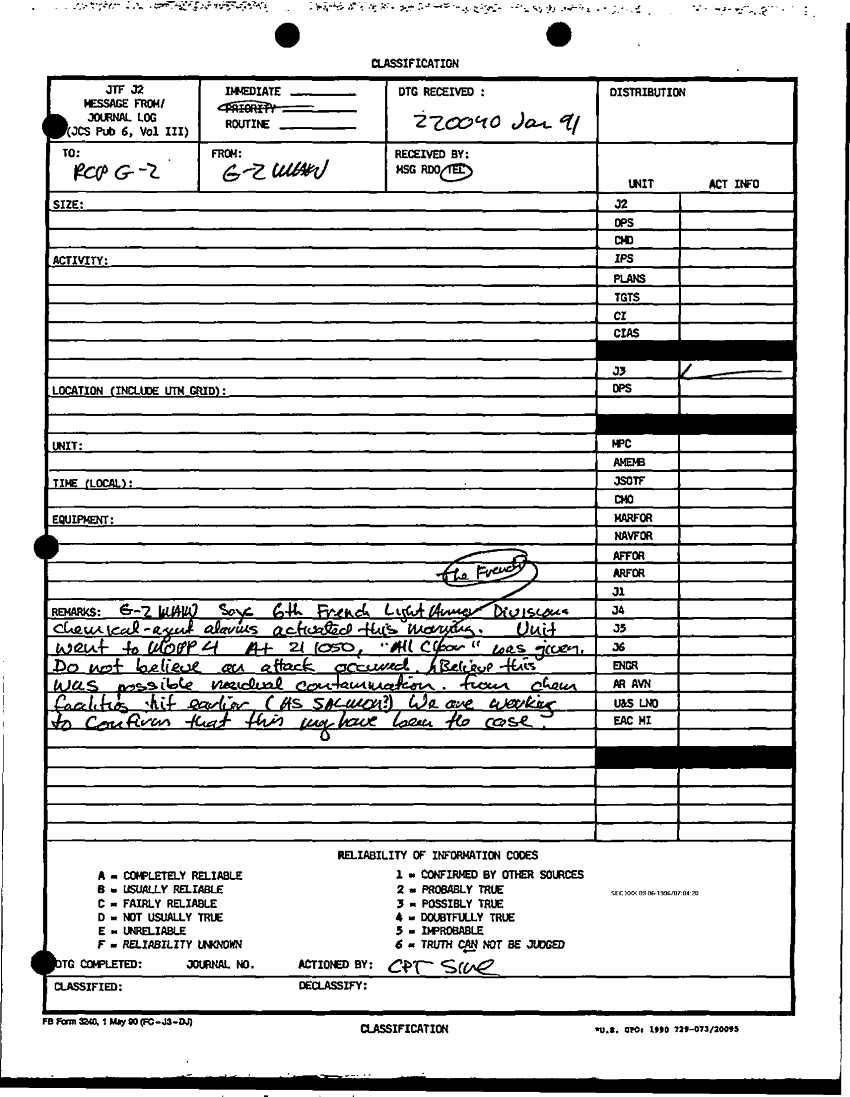 CLASSIFICATION
JTF J2
MESSAGE FROM/
JOURNAL LOG
(JCS Pub 6, Vol III)
IMMEDIATE
PRIORITY
ROUTINE
DTG RECEIVED :
220040 Jan 91
DISTRIBUTION
TO:
G-2
FROM:
G-2
RECEIVED BY:
MSG RDO TEL
UNIT ACT INFO
SIZE:
J2
OPS
CMD
ACTIVITY:
IPS
PLANS
TGTS
CI
CIAS
J3
LOCATION (INCLUDE UTM GRID):
OPS
UNIT:
MPC
AMEMB
TIME (LOCAL):
JSOTF
CMO
EQUIPMENT:
MARFOR
NAVFOR
AFFOR
The French
ARFOR
J1
REMARKS: G-2 Says 6th French Light Armor Divisions
J4
chemical-agent alarms activated this morning. Unit
J5
went to MOPP 4 At 21 1050, "All Clear" was given.
J6
Do not believe an attack occurred. Believe this
ENGR
was possible residual contamination. from chem
AR AVN
facilities hit earlier (AS SALMON?) We are working
U&S LNO
to Confirm that this may have been the case.
EAC MI
RELIABILITY OF INFORMATION CODES
A = COMPLETELY RELIABLE
B = USUALLY RELIABLE
C = FAIRLY RELIABLE
D = NOT USUALLY TRUE
E = UNRELIABLE
F = RELIABILITY UNKNOWN
1 = CONFIRMED BY OTHER SOURCES
2 = PROBABLY TRUE
3 = POSSIBLY TRUE
4 = DOUBTFULLY TRUE
5 = IMPROBABLE
6 = TRUTH CAN NOT BE JUDGED
DTG COMPLETED: JOURNAL NO. ACTIONED BY: CPT
CLASSIFIED: DECLASSIFY:
FB Form 3240, 1 May 90 (FC-J3-DJ)
CLASSIFICATION
*U.S. GPO: 1990 729-073/20095